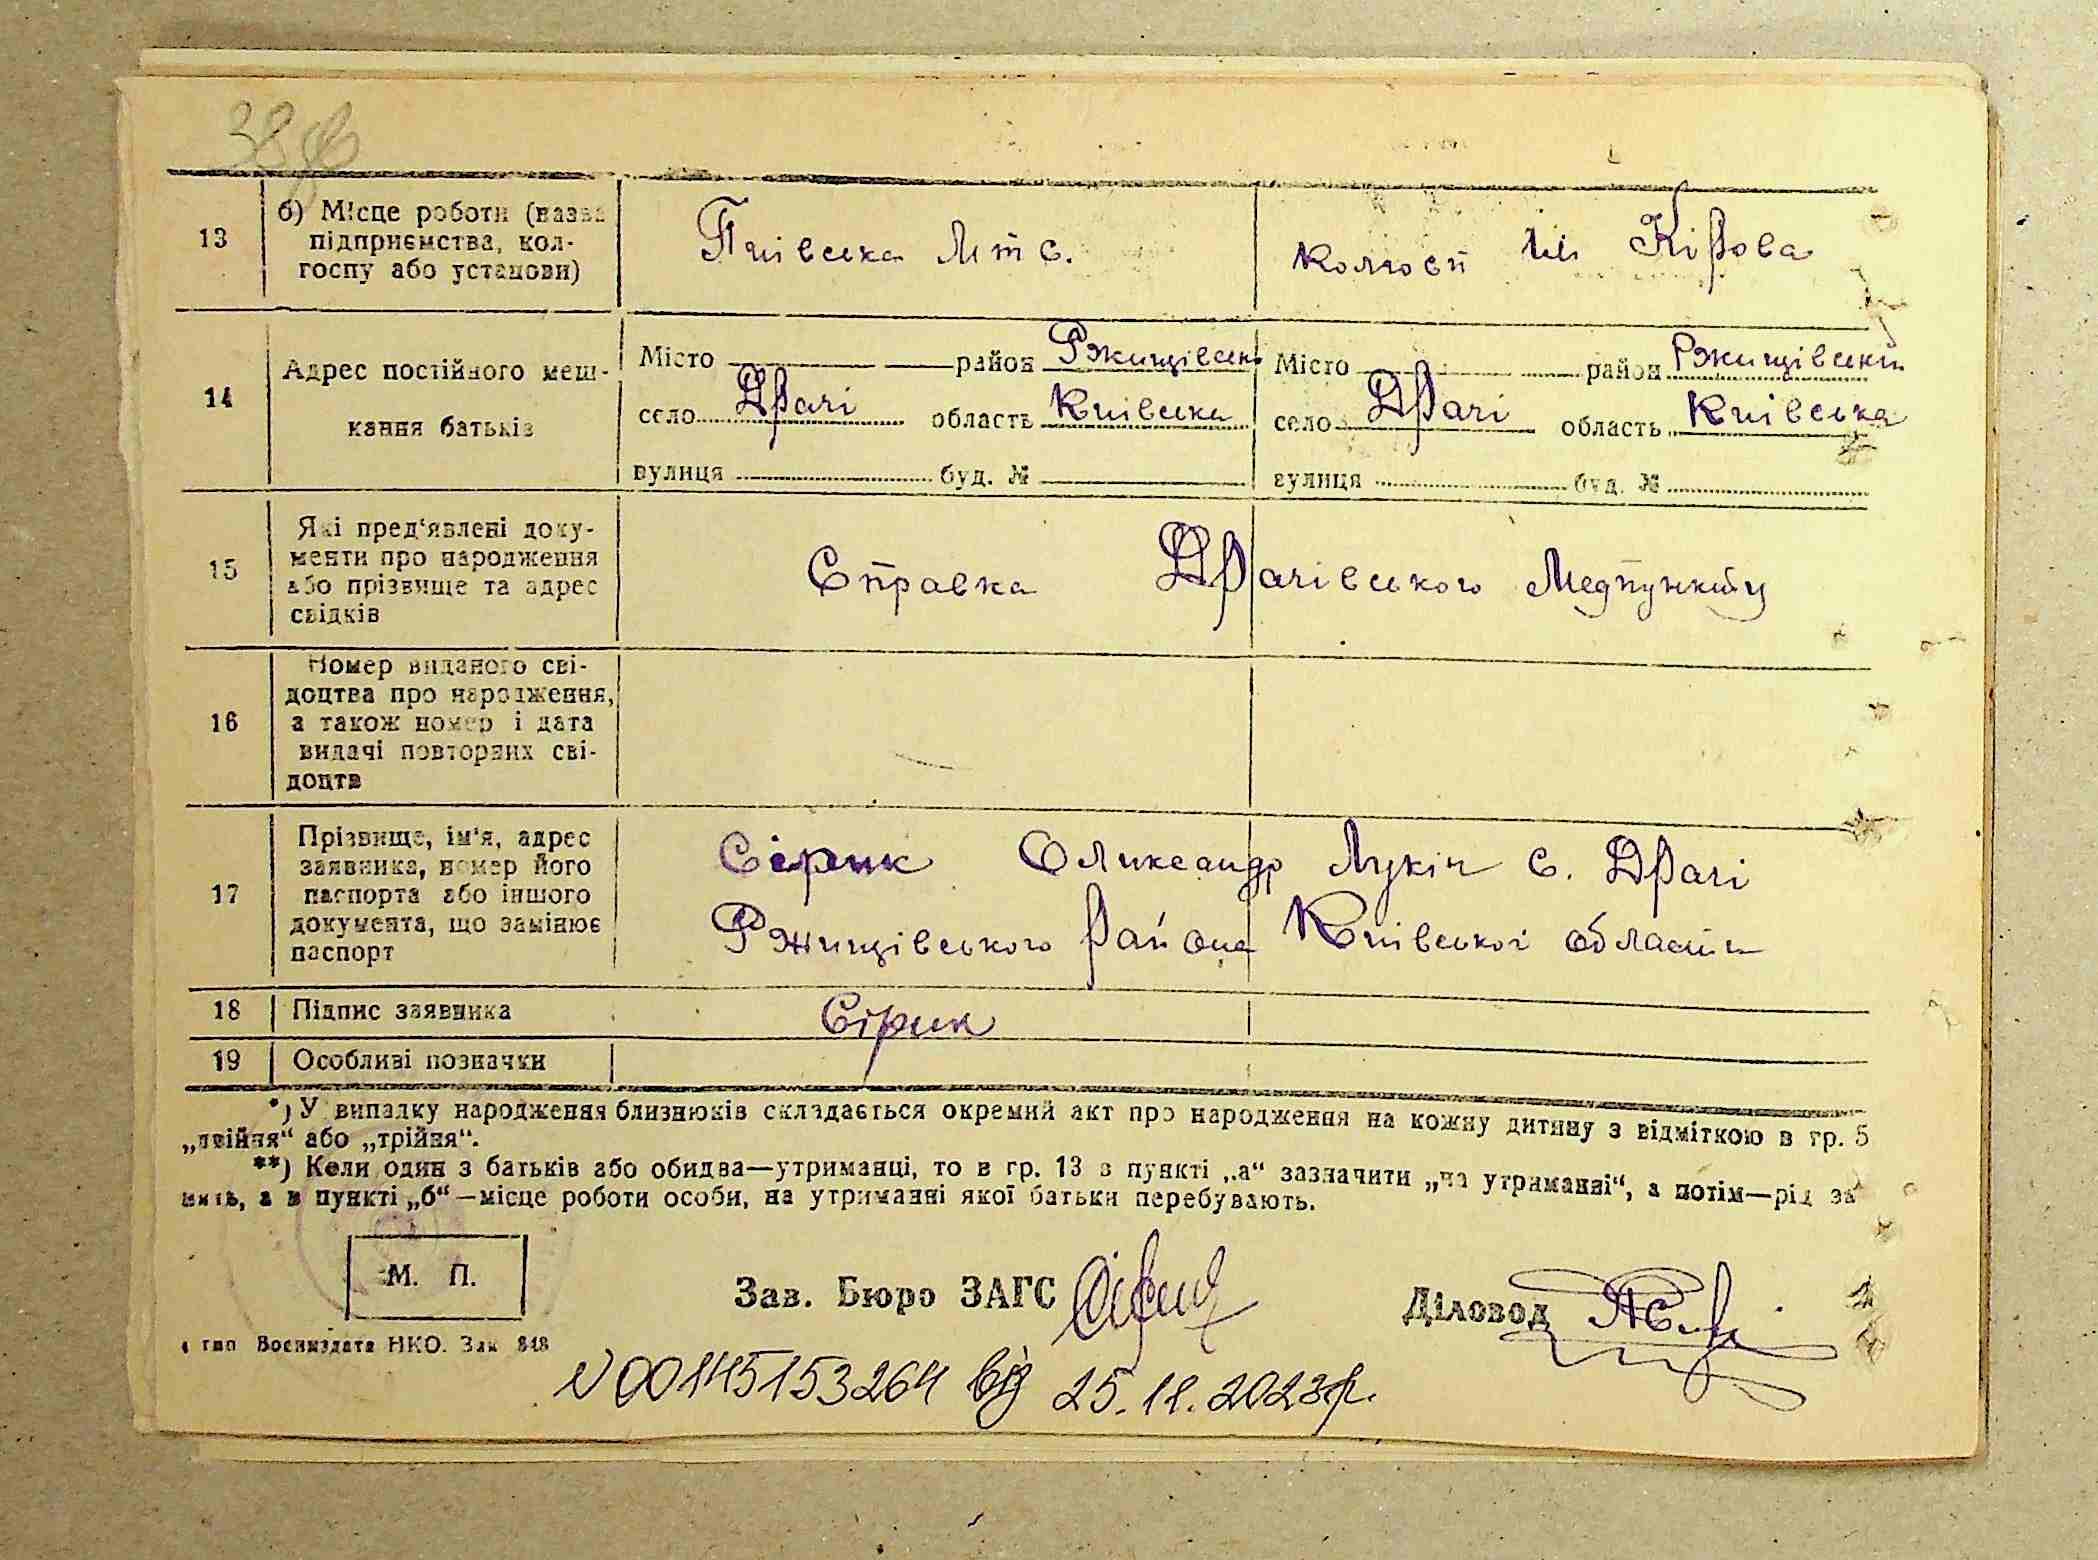 38
13
б) Місце роботи (назва
підприємства, кол-
госпу або установи)
Пиівська мтс.
Колгосп ім Кірова
14
Адрес постійного меш-
кання батьків
Місто район Ржищівськ
село Драчі область Київська
вулиця буд. №
Місто район Ржищівськи
село Драчі область Київська
вулиця буд. №
15
Які пред'явлені доку-
менти про народження
або прізвище та адрес
свідків
Справка Драчівського Медпункту
16
Номер виданого сві-
доцтва про народження,
а також номер і дата
видачі повторних сві-
доцтв
17
Прізвище, ім'я, адрес
заявника, номер його
паспорта або іншого
документа, що замінює
паспорт
Сірик Олександр Лукіч с. Драчі
Ржищівського району Київської області
18
Підпис заявника
Сірик
19
Особливі позначки
*) У випадку народження близнюків складається окремий акт про народження на кожну дитину з відміткою в гр. 5
„двійня“ або „трійня“.
**) Коли один з батьків або обидва—утриманці, то в гр. 13 в пункті „а“ зазначити „на утриманні“, а потім—рід за
нять, а в пункті „б“—місце роботи особи, на утриманні якої батьки перебувають.
М. П.
Зав. Бюро ЗАГС
Діловод
тип Воениздата НКО. Зак 848
N 00145153264 від 25.12.2023р.